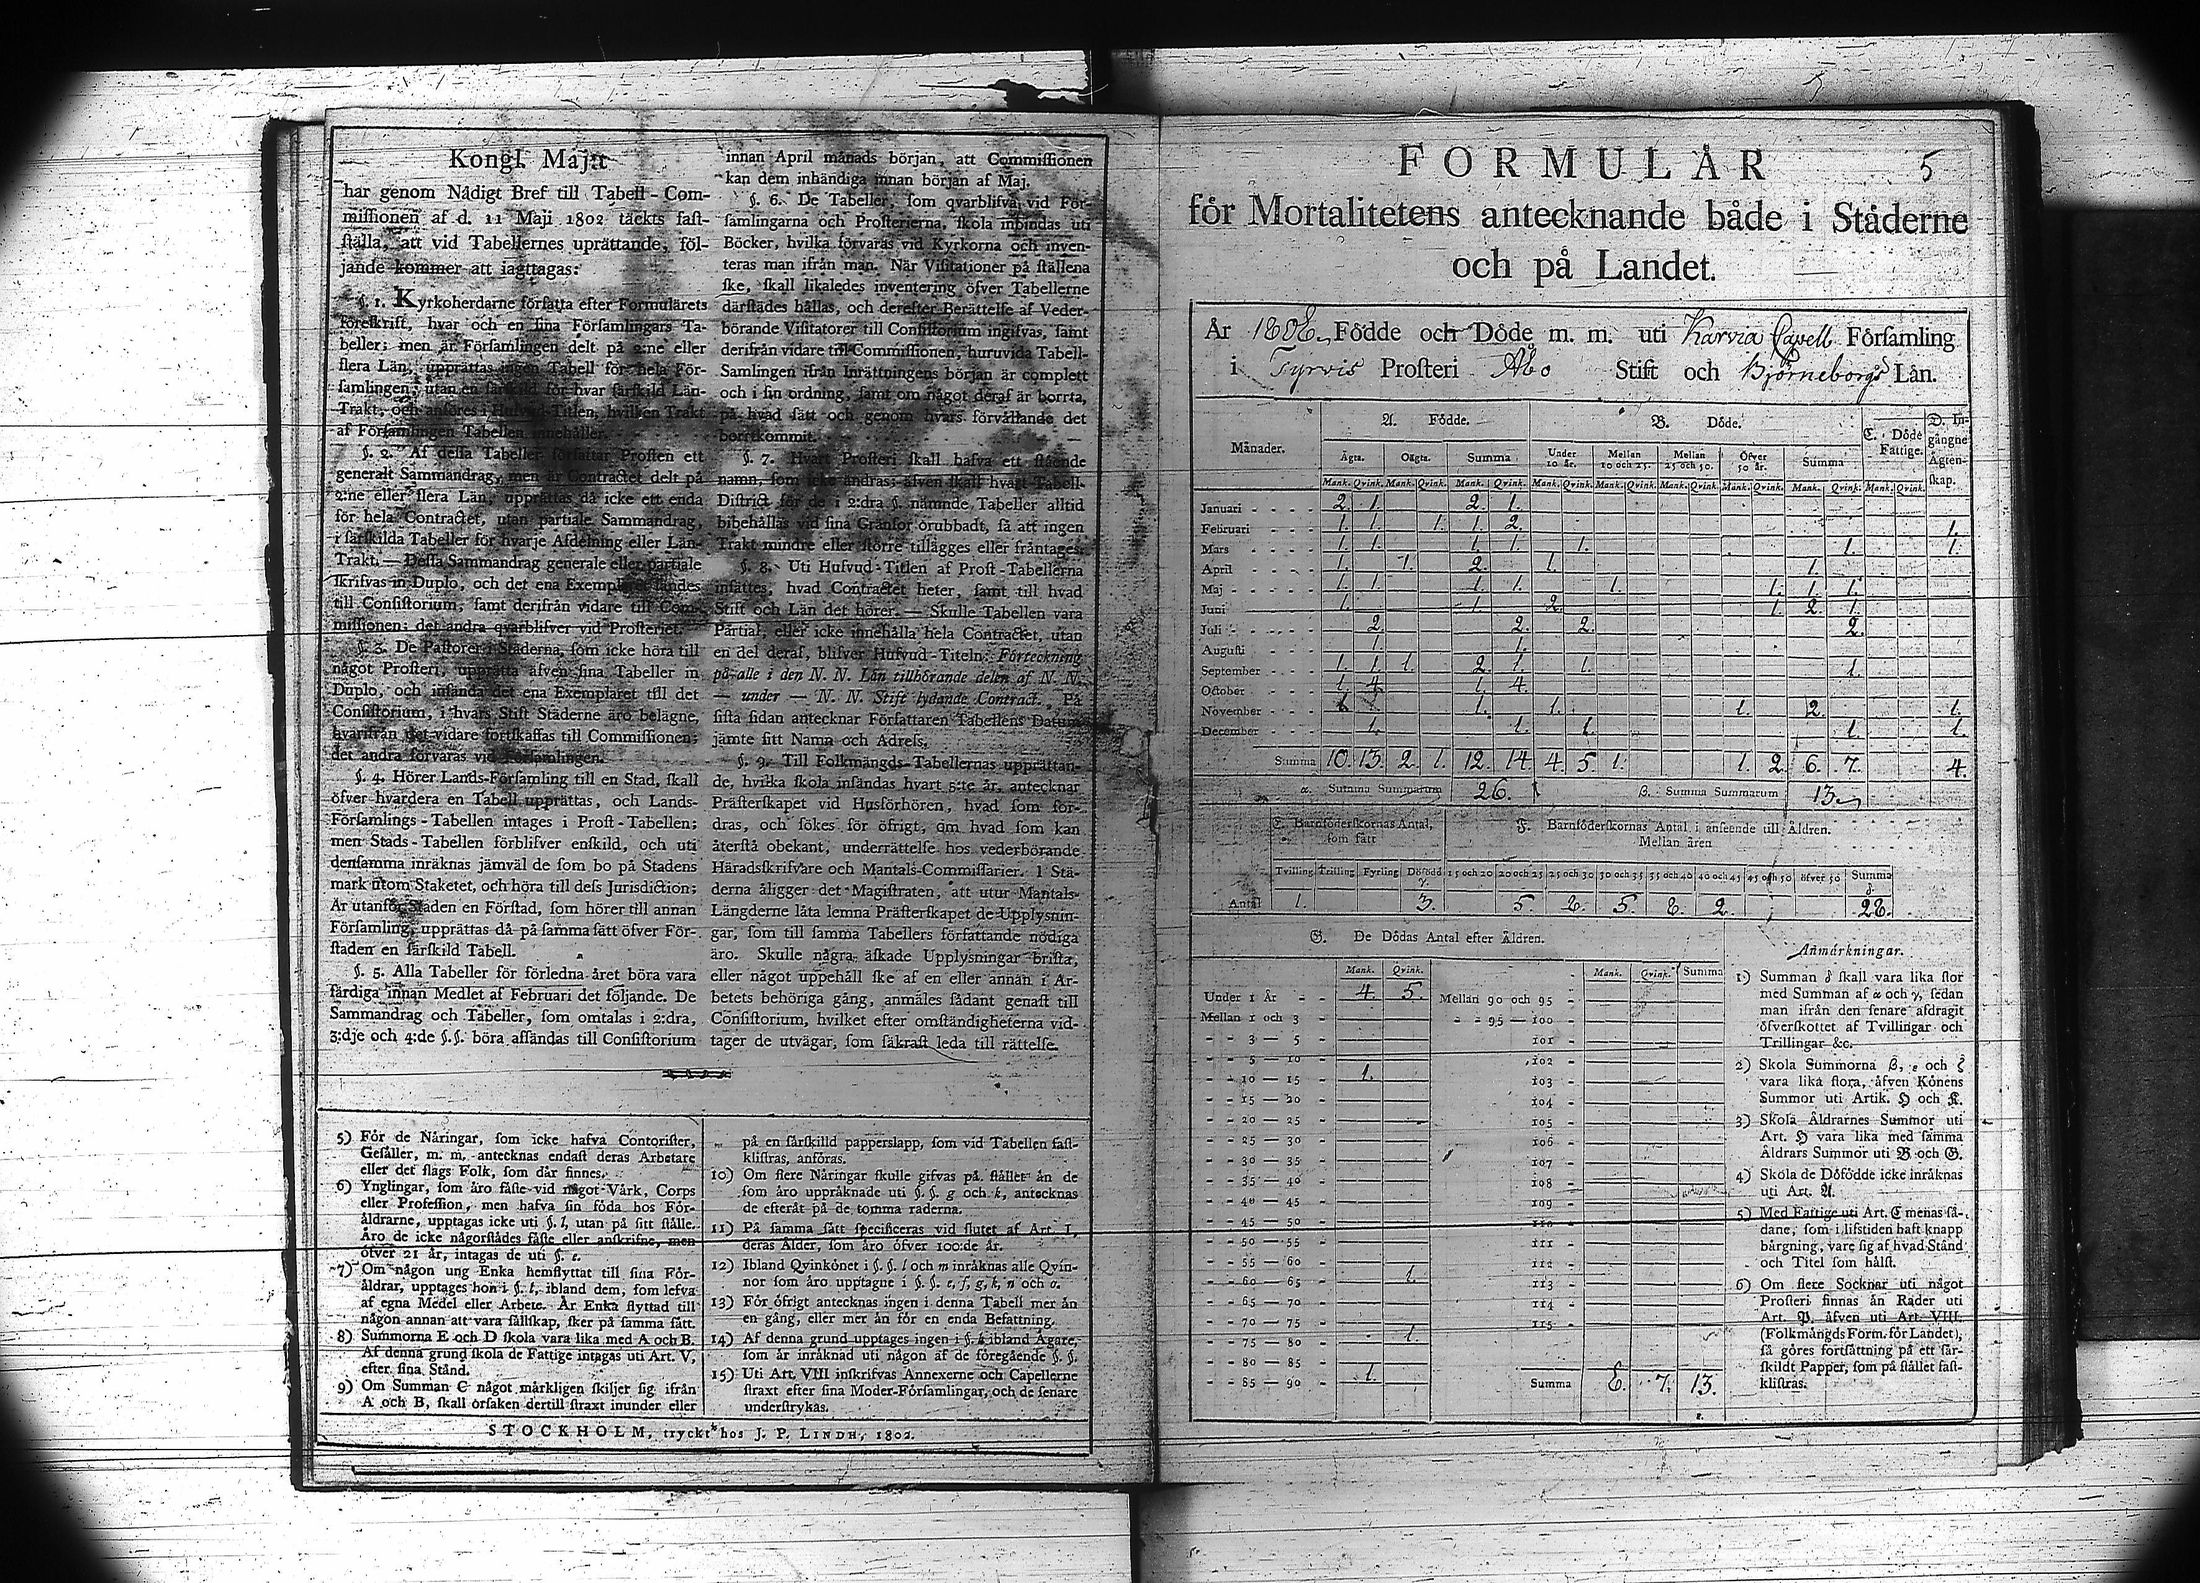 Kongl. Maj:t
har genom Nådigt Bref till Tabell-Com-
missionen af d. 11 Maji 1802 täckts fast-
ställa, att vid Tabellernes uprättande, föl-
jande kommer att iagttagas:
§. 1. Kyrkoherdarne författa efter Formulärets
föreskrift, hvar och en sina Församlingars Ta-
beller; men är Församlingen delt på 2:ne eller
flera Län, upprättas ingen Tabell för hela För-
samlingen, utan en särskild för hvar särskild Län-
Trakt, och anföres i Hufvud-Titlen, hvilken Trakt
af Församlingen Tabellen innehåller.
§. 2. Af dessa Tabeller författar Prosten ett
generalt Sammandrag, men är Contractet delt på
2:ne eller flera Län, upprättas då icke ett enda
för hela Contractet, utan partiale Sammandrag,
i särskilda Tabeller för hvarje Afdelning eller Län-
Trakt. — Dessa Sammandrag generale eller partiale
skrifvas in Duplo, och det ena Exemplaret sändes
till Consistorium, samt derifrån vidare till Com-
missionen; det andra qvarblifver vid Prosteriet.
§. 3. De Pastorer i Städerna, som icke höra till
något Prosteri, upprätta äfven sina Tabeller in
Duplo, och insända det ena Exemplaret till det
Consistorium, i hvars Stift Städerne äro belägne,
hvarifrån det vidare fortskaffas till Commissionen;
det andra förvaras vid Församlingen.
§. 4. Hörer Lands-Församling till en Stad, skall
öfver hvardera en Tabell upprättas, och Lands-
Församlings-Tabellen intages i Prost-Tabellen;
men Stads-Tabellen förblifver enskild, och uti
densamma inräknas jämväl de som bo på Stadens
mark utom Staketet, och höra till dess Jurisdiction;
Är utanför Staden en Förstad, som hörer till annan
Församling, upprättas då på samma sätt öfver För-
staden en särskild Tabell.
§. 5. Alla Tabeller för förledna året böra vara
färdiga innan Medlet af Februari det följande. De
Sammandrag och Tabeller, som omtalas i 2:dra,
3:dje och 4:de §.§. böra afsändas till Consistorium
innan April månads början, att Commissionen
kan dem inhändiga innan början af Maj.
§. 6. De Tabeller, som qvarblifva vid För-
samlingarna och Prosterierna, skola inbindas uti
Böcker, hvilka förvaras vid Kyrkorna och inven-
teras man ifrån man. När Visitationer på ställena
ske, skall likaledes inventering öfver Tabellerne
därstädes hållas, och derefter Berättelse af Veder-
börande Visitatorer till Consistorium ingifvas, samt
derifrån vidare till Commissionen, huruvida Tabell-
Samlingen ifrån Inrättningens början är complett
och i sin ordning, samt om något deraf är borrta,
på hvad sätt och genom hvars förvållande det
borrtkommit.
§. 7. Hvart Prosteri skall hafva ett stående
namn, som icke ändras; äfven skall hvart Tabell-
District för de i 2:dra §. nämnde Tabeller alltid
bibehållas vid sina Gränsor orubbadt, så att ingen
Trakt mindre eller större tillägges eller fråntages.
§. 8. Uti Hufvud-Titlen af Prost-Tabellerna
insättes, hvad Contractet heter, samt till hvad
Stift och Län det hörer. — Skulle Tabellen vara
Partial, eller icke innehålla hela Contractet, utan
en del deraf, blifver Hufvud-Titeln: Förteckning
på alle i den N. N. Län tillhörande delen af N. N.
— under — N. N. Stift lydande Contract. På
sista sidan antecknar Författaren Tabellens Datum
jämte sitt Namn och Adress.
§. 9. Till Folkmängds-Tabellernas upprättan-
de, hvilka skola insändas hvart 5:te år, antecknar
Prästerskapet vid Husförhören, hvad som for-
dras, och sökes för öfrigt, om hvad som kan
återstå obekant, underrättelse hos vederbörande
Häradsskrifvare och Mantals-Commissarier. I Stä-
derna åligger det Magistraten, att utur Mantals-
Längderne låta lemna Prästerskapet de Upplysnin-
gar, som till samma Tabellers författande nödiga
äro. Skulle några äskade Upplysningar brista,
eller något uppehåll ske af en eller annan i Ar-
betets behöriga gång, anmäles sådant genast till
Consistorium, hvilket efter omständigheterna vid-
tager de utvägar, som säkrast leda till rättelse.
5) För de Näringar, som icke hafva Contorister,
Gesäller, m. m. antecknas endast deras Arbetare
eller det slags Folk, som där finnes.
6) Ynglingar, som äro fäste vid något Värk, Corps
eller Profession, men hafva sin föda hos För-
äldrarne, upptagas icke uti §. l, utan på sitt ställe.
Äro de icke någorstädes fäste eller anskrifne, men
öfver 21 år, intagas de uti §. e.
7) Om någon ung Enka hemflyttat till sina För-
äldrar, upptages hon i §. l, ibland dem, som lefva
af egna Medel eller Arbete. Är Enka flyttad till
någon annan att vara sällskap, sker på samma sätt.
8) Summorna E och D skola vara lika med A och B.
Af denna grund skola de Fattige intagas uti Art. V,
efter sina Stånd.
9) Om Summan C något märkligen skiljer sig ifrån
A och B, skall orsaken dertill straxt inunder eller
på en särskilld papperslapp, som vid Tabellen fast-
klistras, anföras.
10) Om flere Näringar skulle gifvas på stället än de
som äro uppräknade uti §. §. g och k, antecknas
de efteråt på de tomma raderna.
11) På samma sätt specificeras vid slutet af Art. I,
deras Ålder, som äro öfver 100:de år.
12) Ibland Qvinkönet i §. §. l och m inräknas alle Qvin-
nor som äro upptagne i §. §. e, f, g, k, n och o.
13) För öfrigt antecknas ingen i denna Tabell mer än
en gång, eller mer än för en enda Befattning.
14) Af denna grund upptages ingen i §. k ibland Ägare,
som är inräknad uti någon af de föregående §. §.
15) Uti Art. VIII inskrifvas Annexerne och Capellerne
straxt efter sina Moder-Församlingar, och de senare
understrykas.
STOCKHOLM, tryckt hos J. P. LINDH, 1802.
FORMULÄR 5
för Mortalitetens antecknande både i Städerne
och på Landet.
År 1808. Födde och Döde m. m. uti Karvia Capell Församling
i Tyrvis Prosteri Åbo Stift och Björneborgs Län.
Månader. A. Födde. B. Döde. C. Döde Fattige. D. Ingångne Ägtenskap.
Ägta. Oägta. Summa Under 10 år. Mellan 10 och 25. Mellan 25 och 50. Öfver 50 år. Summa
Mank. Qvink. Mank. Qvink. Mank. Qvink. Mank. Qvink. Mank. Qvink. Mank. Qvink. Mank. Qvink. Mank. Qvink. Mank. Qvink.
Januari 2. 1. 2. 1.
Februari 1. 1. 1. 1. 2. 1.
Mars 1. 1. 1. 1. 1. 1. 1.
April 1. 1. 2. 1. 1.
Maj 1. 1. 1. 1. 1. 1. 1. 1.
Juni 1. 1. 2. 1. 2. 1.
Juli 2. 2. 2. 2.
Augusti 1. 1.
September 1. 1. 1. 2. 1. 1. 1.
October 1. 4. 1. 4.
November 1. 1. 1. 2. 1.
December 1. 1. 1. 1. 1.
Summa 10. 13. 2. 1. 12. 14. 4. 5. 1. 1. 2. 6. 7. 4.
α. Summa Summarum 26. β. Summa Summarum 13.
E. Barnföderskornas Antal, som fått F. Barnföderskornas Antal i anseende till Åldren.
Mellan åren
Tvilling Trilling Fyrling Dödfödd γ. 15 och 20 20 och 25 25 och 30 30 och 35 35 och 40 40 och 45 45 och 50 öfver 50 Summa δ.
Antal 1. 3. 5. 8. 5. 8. 2. 28.
G. De Dödas Antal efter Åldren.
Mank. Qvink. Mank. Qvink. Summa
Under 1 År 4. 5. Mellan 90 och 95
Mellan 1 och 3 95 — 100
3 — 5 101
5 — 10 102
10 — 15 1. 103
15 — 20 104
20 — 25 105
25 — 30 106
30 — 35 107
35 — 40 108
40 — 45 109
45 — 50 110
50 — 55 111
55 — 60 112
60 — 65 1. 113
65 — 70 114
70 — 75 115
75 — 80 1.
80 — 85
85 — 90 1. Summa 6. 7. 13.
Anmärkningar.
1) Summan δ skall vara lika stor
med Summan af α och γ, sedan
man ifrån den senare afdragit
öfverskottet af Tvillingar och
Trillingar &c.
2) Skola Summorna β, ε och ζ
vara lika stora, äfven Könens
Summor uti Artik. H och K.
3) Skola Åldrarnes Summor uti
Art. H vara lika med samma
Åldrars Summor uti B och G.
4) Skola de Döfödde icke inräknas
uti Art. A.
5) Med Fattige uti Art. C menas så-
dane, som i lifstiden haft knapp
bärgning, vare sig af hvad Stånd
och Titel som hälst.
6) Om flere Socknar uti något
Prosteri finnas än Rader uti
Art. P, äfven uti Art. VIII.
(Folkmängds Form. för Landet),
så göres fortsättning på ett sär-
skildt Papper, som på stället fast-
klistras.